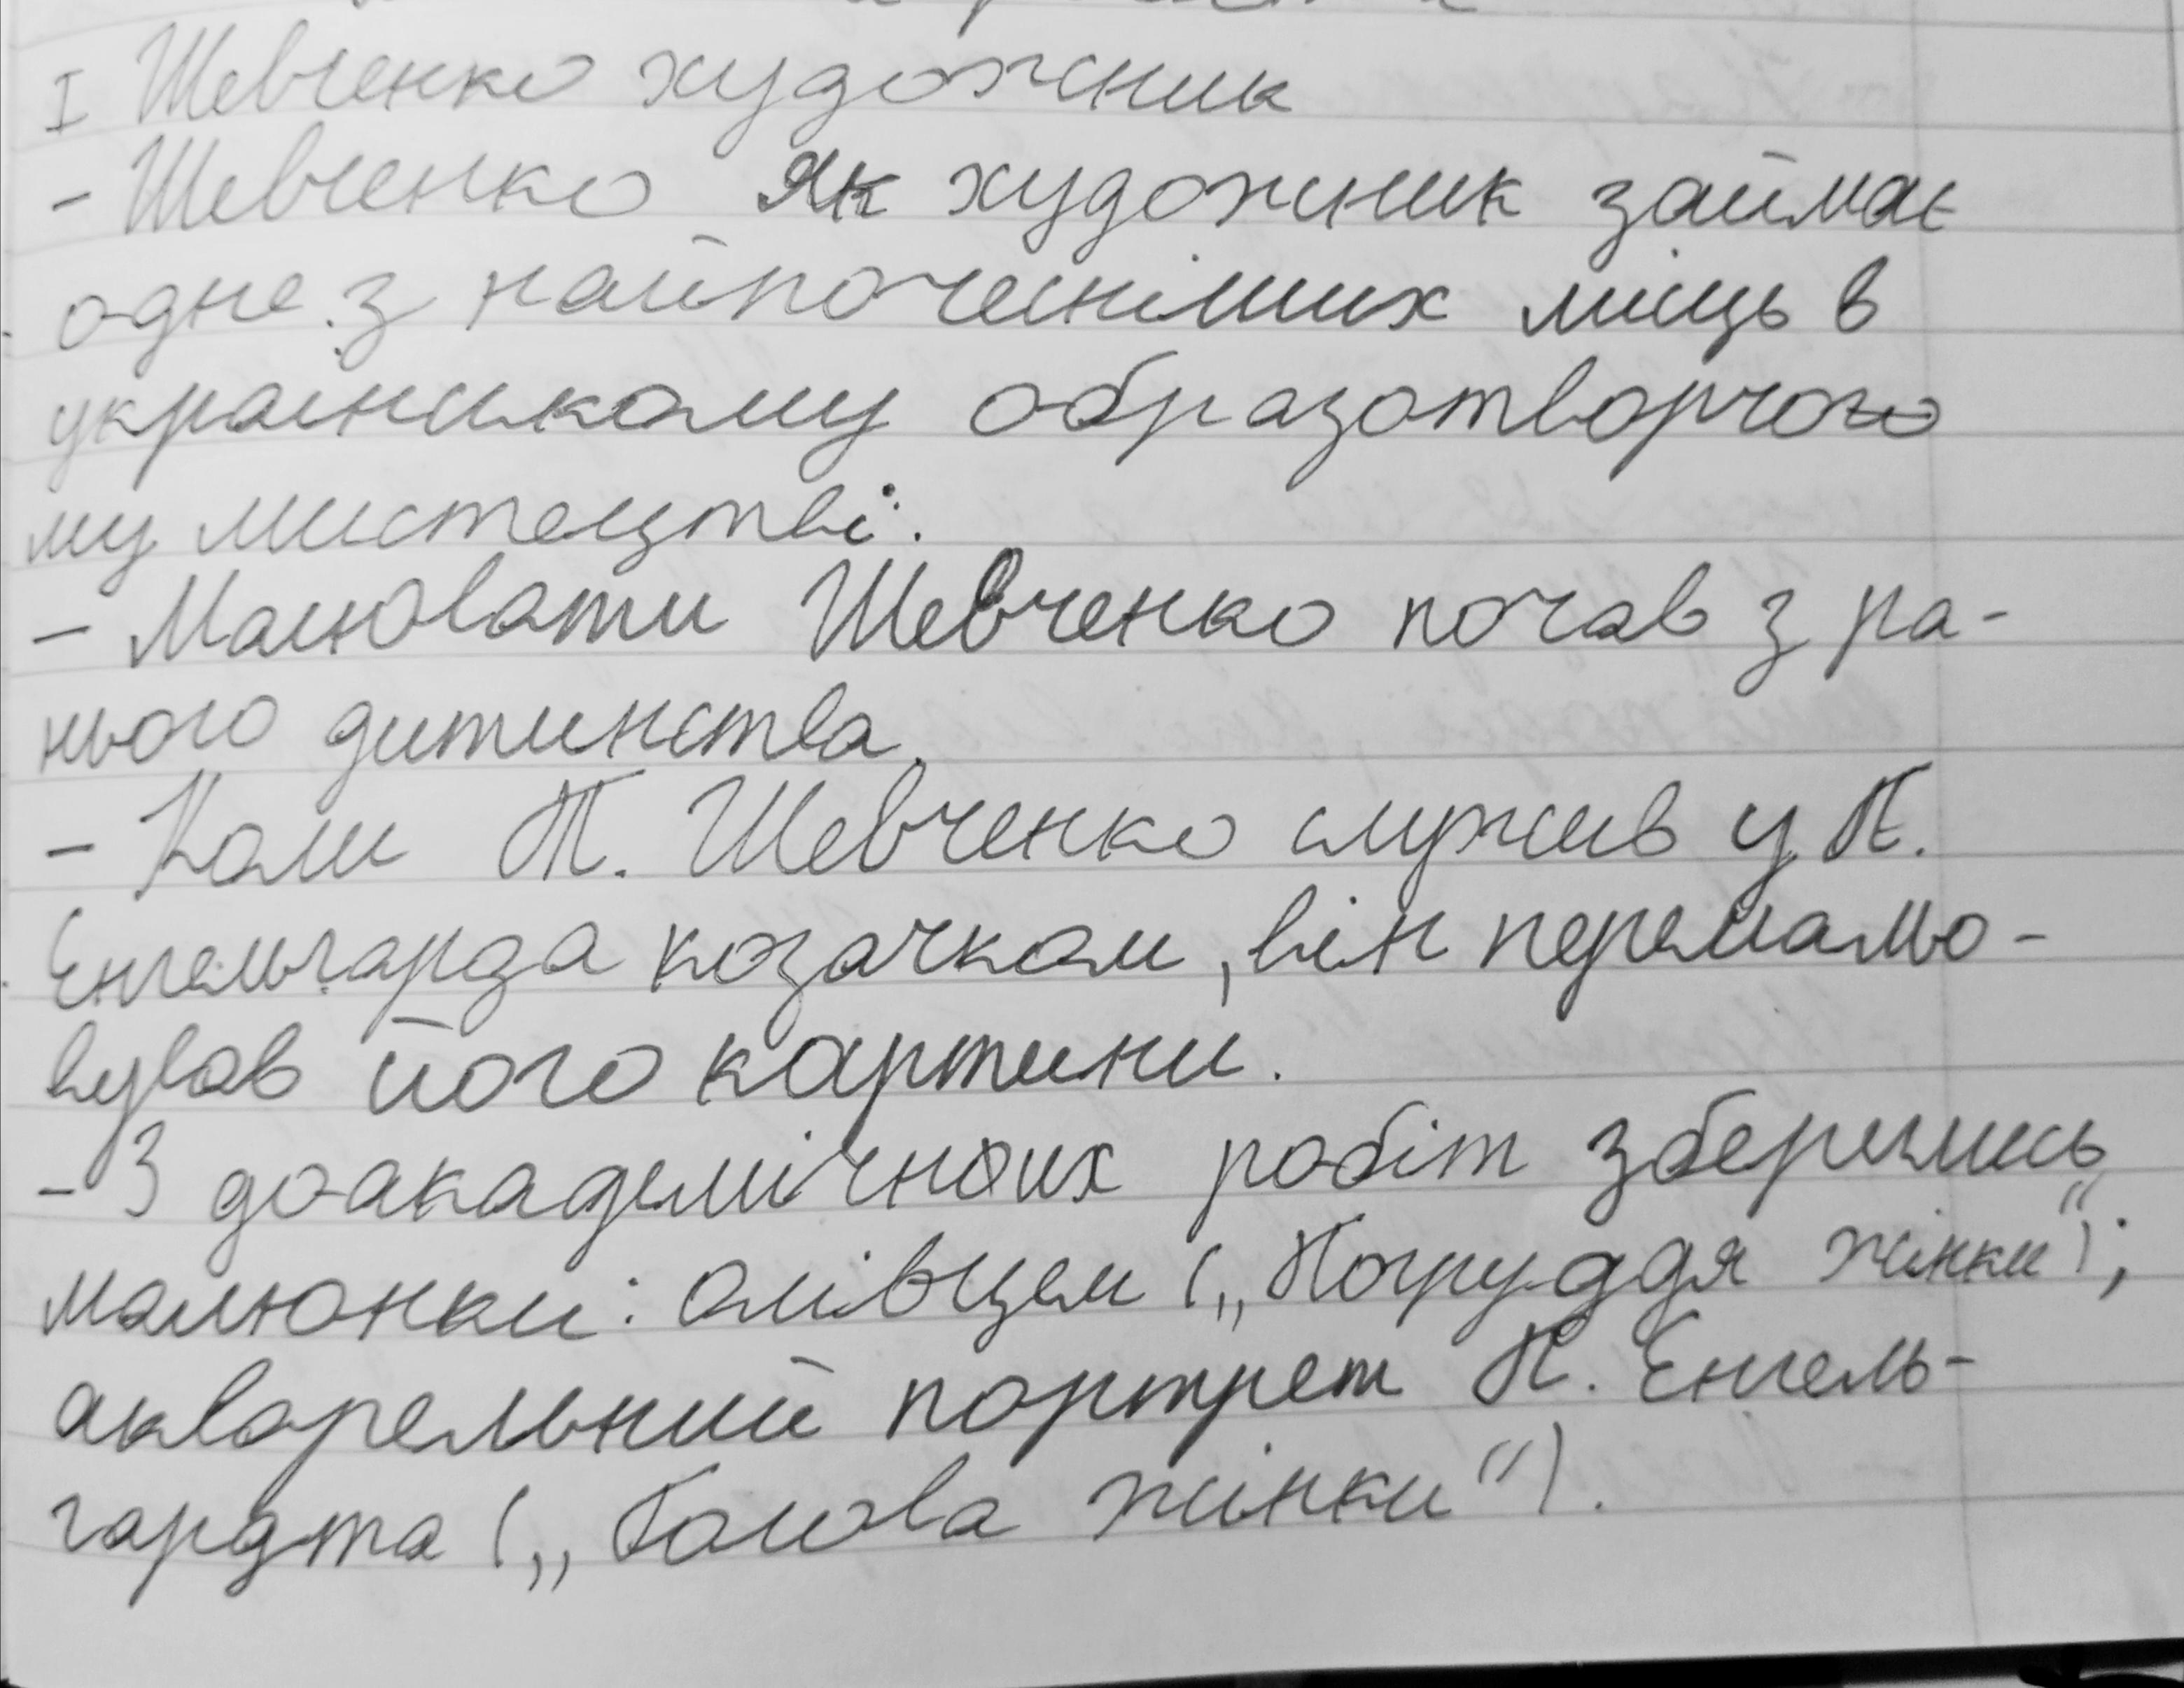 I Шевченко художник
- Шевченко як художник займає
одне з найпочесніших місць в
українському образотворчого
му мистецтві.
- Малювати Шевченко почав з ра-
нього дитинства.
- Коли Т. Шевченко служив у П.
Енгельгарда козачком, він перемальо-
вував його картини.
- З доакадемічних робіт збереглись
малюнки: олівцем („Погруддя жінки“);
акварельний портрет П. Енгель-
гардта („Голова жінки“).